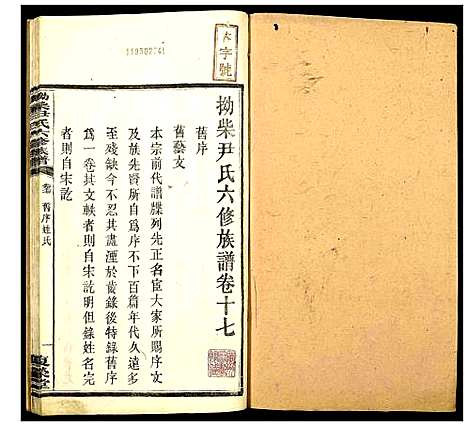 拗柴尹氏六修族譜卷十七
舊序
舊藝文
本宗前代譜牒列先正名宦大家所賜序文
及族先賢所自爲序不下百篇年代久遠多
至殘缺今不忍其盡湮於舊錄後特錄舊序
爲一卷其文軼者則自宋訖明但錄姓名完
者則自宋訖
字號
拗柴尹氏六修族譜
舊序姓氏
一